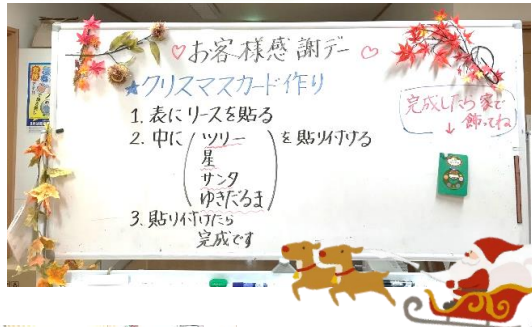 ♡お客様感謝デー♡
★クリスマスカード作り
1. 表にリースを貼る
2. 中に(ツリー
星
サンタ
ゆきだるま)を貼り付ける
3. 貼り付けたら
完成です
完成したら家で
↓飾ってね